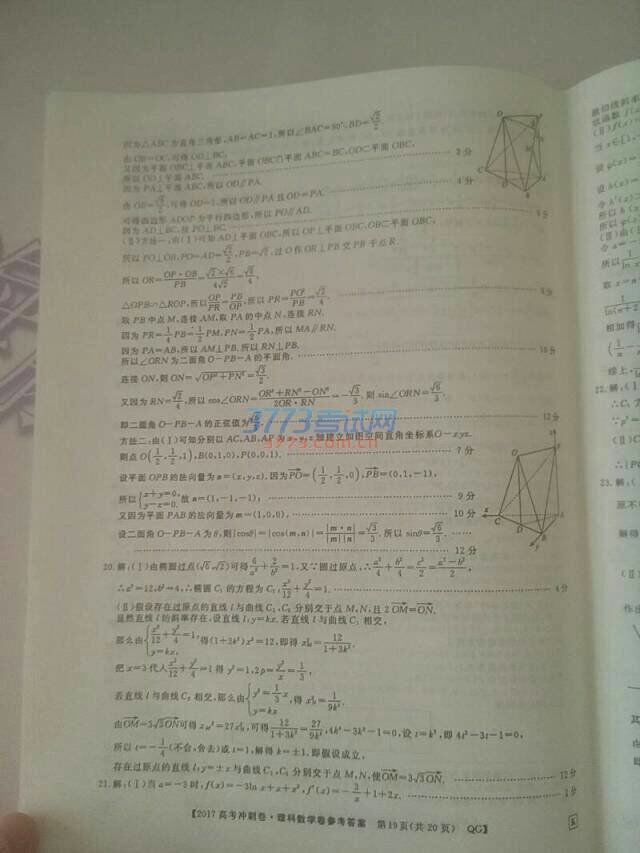 因为△ABC为直角三角形,AB=AC=1,所以∠BAC=90°,BD=√2/2
由OB=OC,可得OD⊥BC,
又因为平面OBC⊥平面ABC,平面OBC∩平面ABC=BC,OD⊂平面OBC,
所以OD⊥平面ABC, 2分
因为PA⊥平面ABC,所以OD∥PA.
可得OD=1,所以OD∥PA且OD=PA, 4分
可得四边形ADOP为平行四边形,所以PO∥AD.
因为AD⊥BC,故PO⊥BC. 5分
(Ⅱ)方法一:由(Ⅰ)可知AD⊥平面OBC,所以OP⊥平面OBC,OB⊂平面OBC,
所以PO⊥OB,PO=AD=√2/2,PB=√2,过O作OR⊥PB交PB于点R.
所以OR=OP·OB/PB=√2×√6/4√2=√6/4,
△OPB∽△ROP,所以OP/PR=PB/OP,所以PR=PO²/PB=√2/4. 8分
取PB中点M,连接AM,取PA的中点N,连接RN.
因为PR=1/4PB=1/2PM,PN=1/2PA,所以MA∥RN.
因为PA=AB,所以AM⊥PB.所以RN⊥PB.
所以∠ORN为二面角O-PB-A的平面角. 10分
连接ON,则ON=√OP²+PN²=√3/2.
又因为RN=√2/4,所以cos∠ORN=OR²+RN²-ON²/2OR·RN=-√3/3.则sin∠ORN=√6/3.
即二面角O-PB-A的正弦值为√6/3. 12分
3773考试网
3773.com.cn
方法二:由(Ⅰ)可知分别以AC,AB,AP为x,y,z轴建立如图空间直角坐标系O-xyz.
则点O(1/2,1/2,1),B(0,1,0),P(0,0,1). 7分
设平面OPB的法向量为n=(x,y,z).因为PO=(1/2,1/2,0),PB=(0,1,-1),
所以{x+y=0, y-z=0.故n=(1,-1,-1); 9分
又因为平面PAB的法向量为m=(1,0,0), 10分
设二面角O-PB-A为θ,则|cosθ|=|cos⟨m,n⟩|=|m·n/|m||n||=√3/3.所以sinθ=√6/3.
12分
20.解:(Ⅰ)由椭圆过点(√6,√2)可得6/a²+2/b²=1,又∵圆过原点,∴a²/4+b²/4=c²/2=a²-b²/2,
∴a²=12,b²=4,∴椭圆C₁的方程为C₁:x²/12+y²/4=1. 4分
(Ⅱ)假设存在过原点的直线l与曲线C₁,C₂分别交于点M,N,且2OM=ON.
显然直线l的斜率存在,设直线l:y=kx.若直线l与曲线C₁相交,
那么由{x²/12+y²/4=1, y=kx,得(1+3k²)x²=12,即得x²M=12/1+3k².
把x=3代入x²/12+y²/4=1得y²=1,2p=y²/x=1/3,
若直线l与曲线C₂相交,那么由{y²=1/3x, y=kx,得x²N=1/9k⁴.
由OM=3√3ON可得x²M=27x²N,可得12/1+3k²=27/9k⁴,4k⁴-3k²-1=0,设t=k²,即4t²-3t-1=0,
所以t=-1/4(不合,舍去)或t=1,解得k=±1.即假设成立,
存在过原点的直线l:y=±x与曲线C₁,C₂分别交于点M,N,使OM=3√3ON. 12分
21.解:(Ⅰ)当a=-3时,f(x)=-3lnx+x+x²,f′(x)=-3/x+1+2x.
【2017高考冲刺卷·理科数学卷参考答案 第19页(共20页) QG】